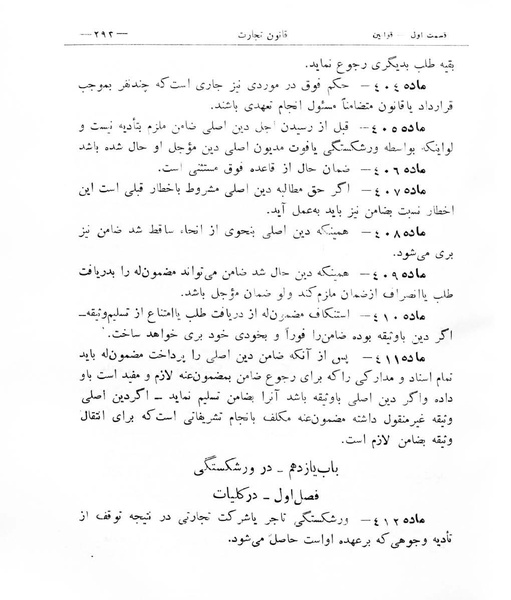 قسمت اول — قوانین قانون تجارت —۲۹۲—
بقیه طلب بدیگری رجوع نماید.
ماده ٤٠٤— حکم فوق در موردی نیز جاری است‌که چندنفر بموجب
قرارداد یاقانون متضامناً مسئول انجام تعهدی باشند.
ماده ٤٠٥— قبل از رسیدن اجل دین اصلی ضامن ملزم بتأدیه نیست و
لواینکه بواسطه ورشکستگی یافوت مدیون اصلی دین مؤجل او حال شده باشد
ماده ٤٠٦— ضمان حال از قاعده فوق مستثنی است.
ماده ٤٠٧— اگر حق مطالبه دین اصلی مشروط باخطار قبلی است این
اخطار نسبت بضامن نیز باید به‌عمل آید.
ماده ٤٠٨— همینکه دین اصلی بنحوی از انحاء ساقط شد ضامن نیز
بری می‌شود.
ماده ٤٠٩— همینکه دین حال شد ضامن می‌تواند مضمون‌له را بدریافت
طلب یاانصراف ازضمان ملزم‌کند ولو ضمان مؤجل باشد.
ماده ٤١٠— استنکاف مضمون‌له از دریافت طلب یاامتناع از تسلیم‌وثیقه—
اگر دین باوثیقه بوده ضامن‌را فوراً و بخودی خود بری خواهد ساخت.
ماده ٤١١— پس از آنکه ضامن دین اصلی را پرداخت مضمون‌له باید
تمام اسناد و مدارکی راکه برای رجوع ضامن بمضمون‌عنه لازم و مفید است باو
داده واگر دین اصلی باوثیقه باشد آنرا بضامن تسلیم نماید — اگردین اصلی
وثیقه غیرمنقول داشته مضمون‌عنه مکلف بانجام تشریفاتی است‌که برای انتقال
وثیقه بضامن لازم است.
باب‌یازدهم – در ورشکستگی
فصل‌اول – درکلیات
ماده ٤١٢— ورشکستگی تاجر یاشرکت تجارتی در نتیجه توقف از
تأدیه وجوهی‌که برعهده اواست حاصل می‌شود.